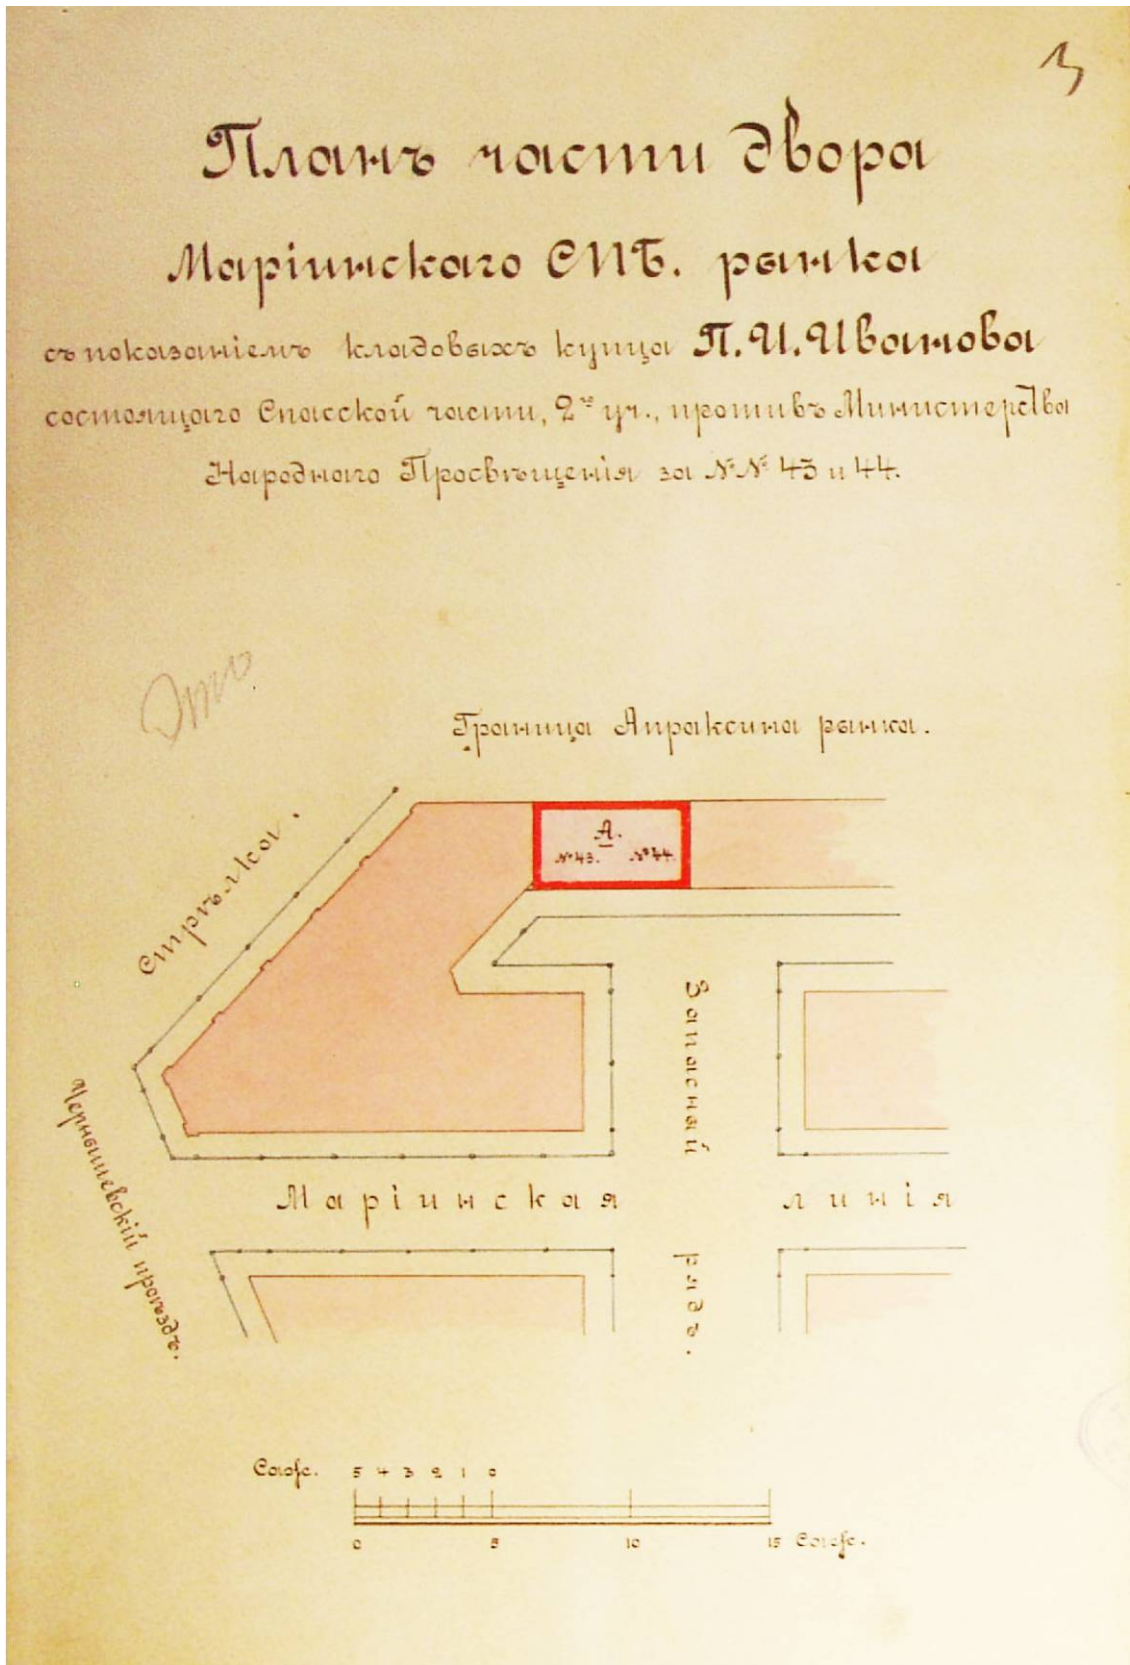 3
Планъ части двора
Маріинскаго СПБ. рынка
съ показаніемъ кладовыхъ купца П. И. Иванова
состоящаго Спасской части, 2го уч., противъ Министерства
Народнаго Просвѣщенія за №№ 43 и 44.
Это
Граница Апраксина рынка.
А.
№ 43. № 44.
Стрѣлка.
Запасный
Чернышевскій проѣздъ.
Маріинская линія
рядъ.
Саж. 5 4 3 2 1 0
0 5 10 15 Саж.